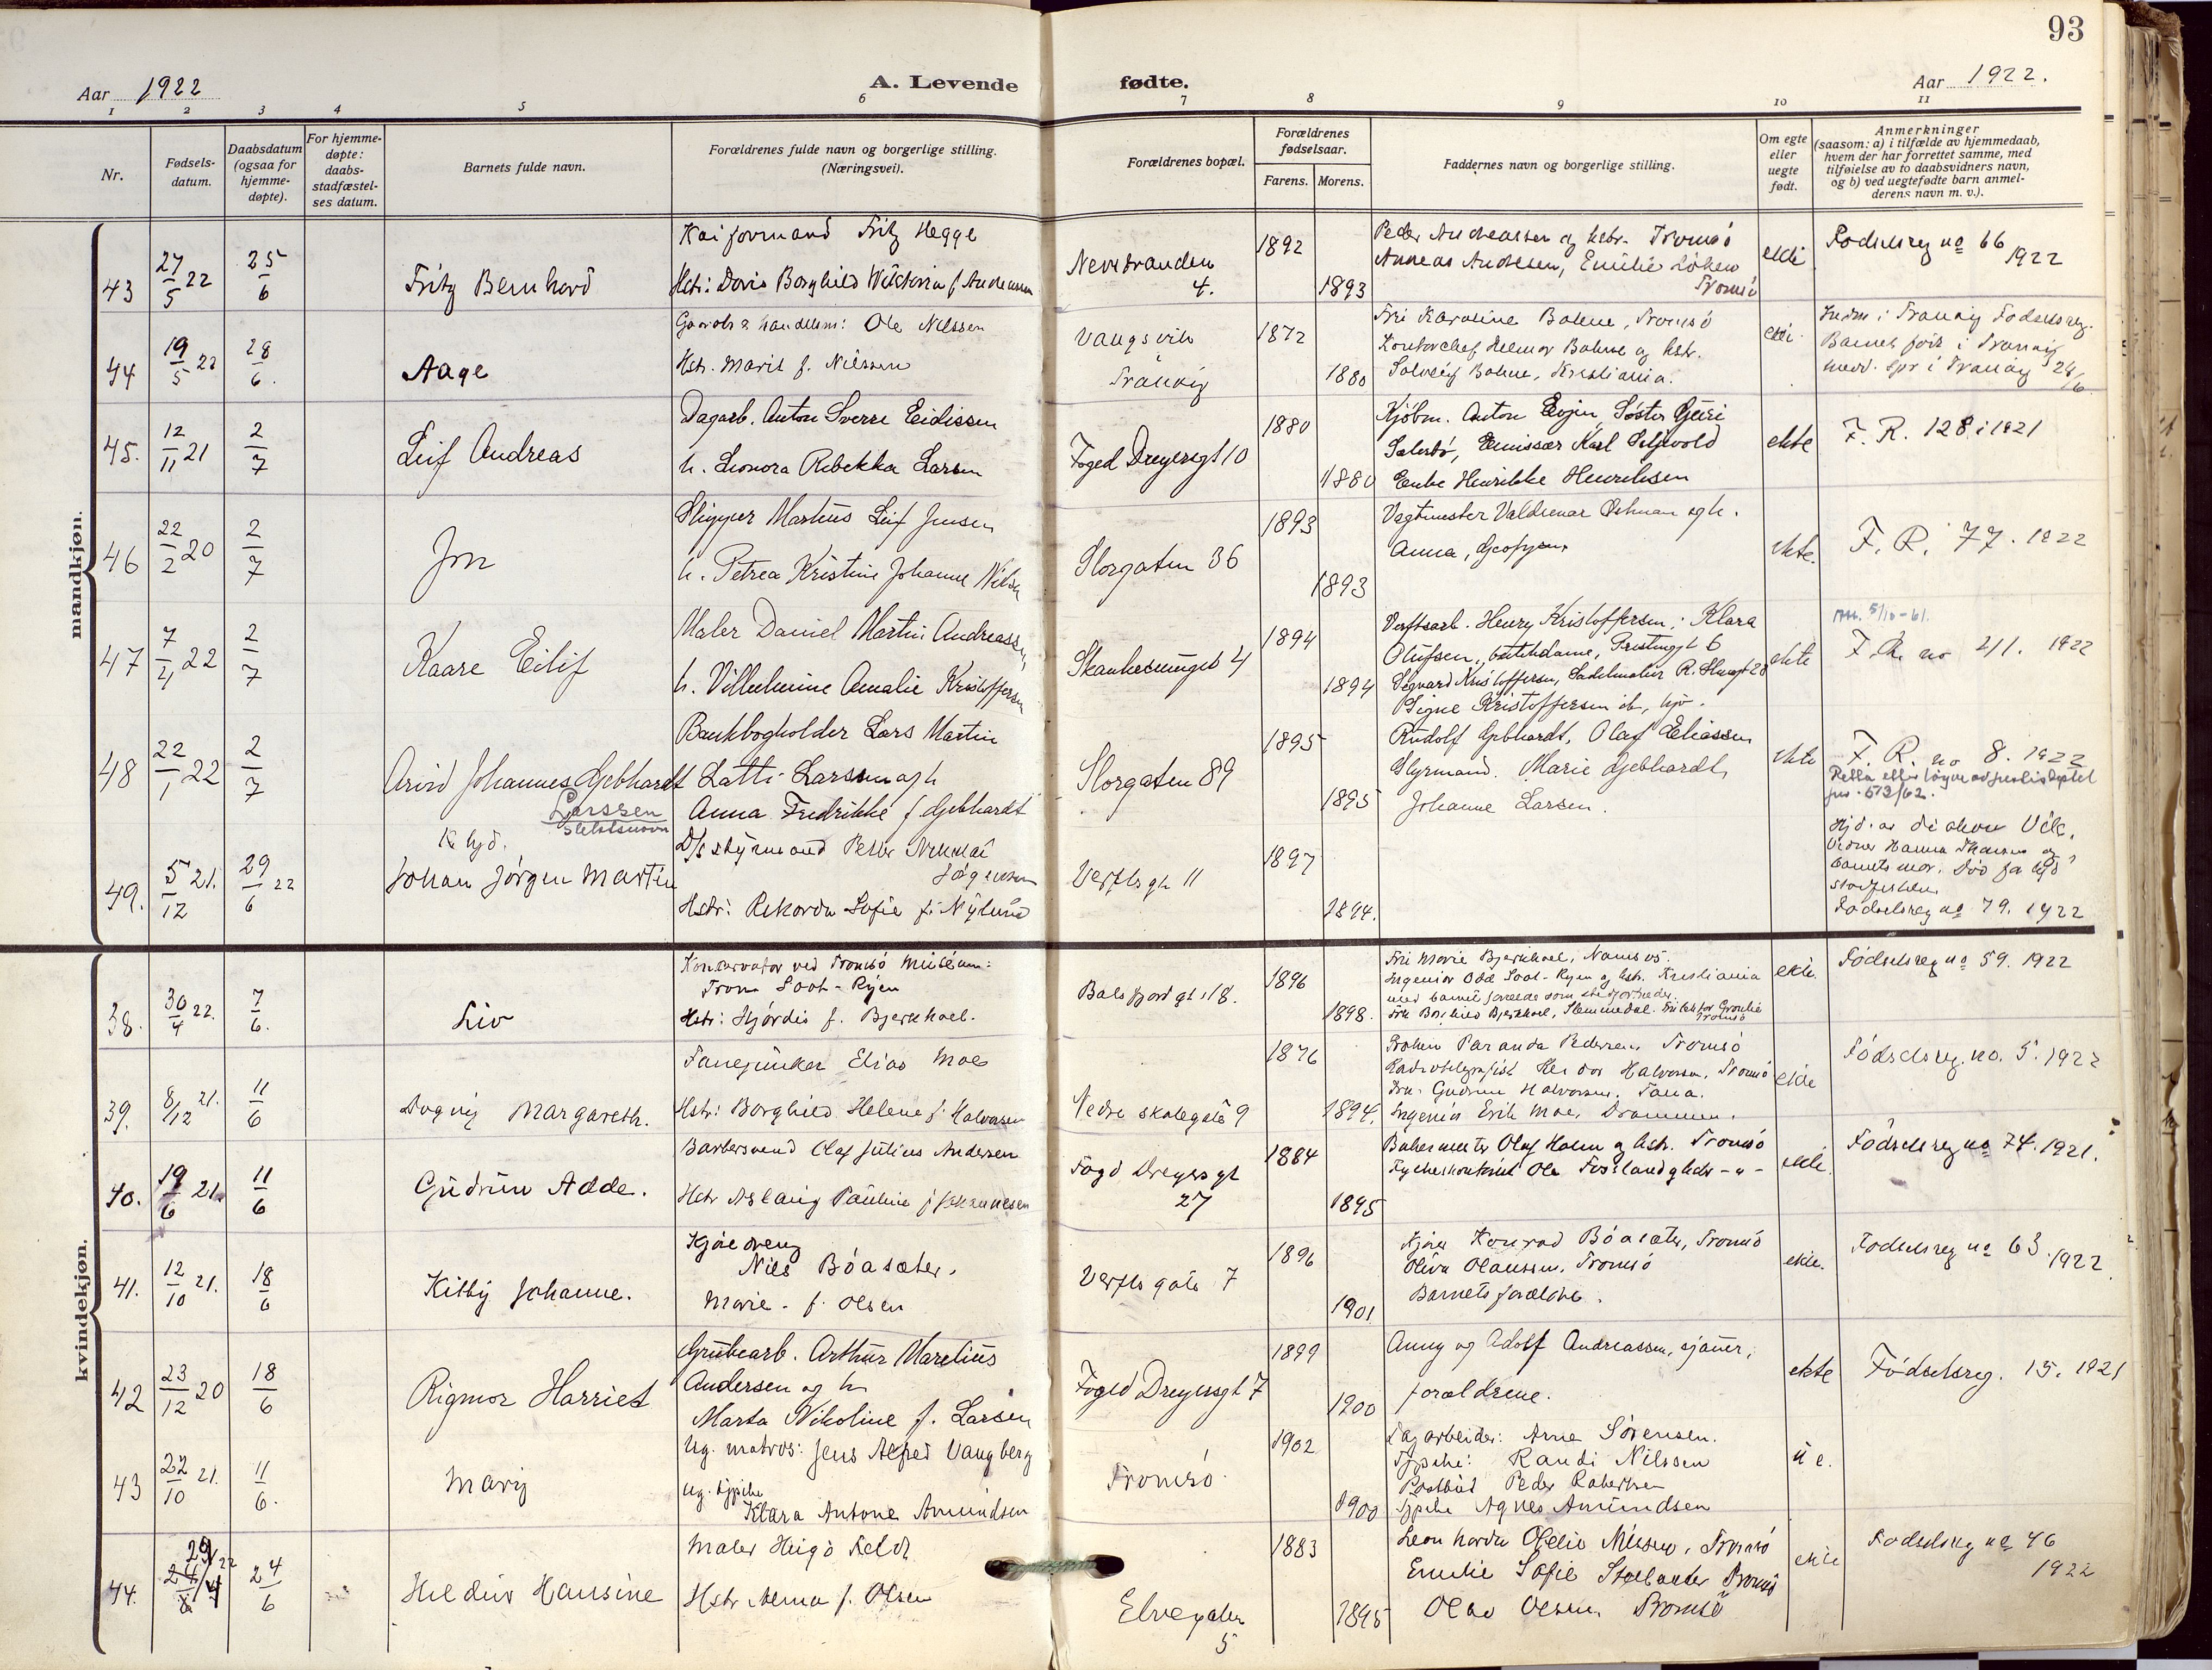 93
Aar 1922
A. Levende
fødte.
Aar 1922.
1 2 3 4 5 6 7 8 9 10 11
Nr.
Fødsels-
datum.
Daabsdatum
(ogsaa for
hjemme-
døpte).
For hjemme-
døpte:
daabs-
stadfæstel-
ses datum.
Barnets fulde navn.
Forældrenes fulde navn og borgerlige stilling.
(Næringsvei).
Forældrenes bopæl.
Forældrenes
fødselsaar.
Farens. Morens.
Faddernes navn og borgerlige stilling.
Om egte
eller
uegte
født.
Anmerkninger
(saasom: a) i tilfælde av hjemmedaab,
hvem der har forrettet samme, med
tilføielse av to daabsvidners navn,
og b) ved uegtefødte barn anmel-
derens navn m. v.).
mandkjøn.
43
27/5 22
25/6
Fritz Bernhard
Kaiformand Fritz Hegge
Hstr: Doris Borghild Viktoria f. Andreassen
4.
1892
1893
Peder Andreassen og hstr. Tromsö
Andreas Andresen, Emilie Löken
Tromsö
ekte
Fodselsreg no 66
1922
44
19/5 22
28/6.
Aage
Gaardbr & handelsm: Ole Nilssen
Hstr. Marit f. Nilssen
Vangsvik
Tranöy
1872
1880
Kontorchef Helmer Bahne og hstr.
Solveig Bahne, Kristiania.
ekte
45.
12/11 21
2/7
Leif Andreas
Dagarb. Anton Sverre Eidissen
h. Leonora Rebekka Larsen
Foged Dreyersgt 10
1880
1880
Kjöbm. Anton Evjen, Söster Guri
Emissær Karl
Enke Henrikke Henriksen
ekte
F. R. 128 i 1921
46
22/2 20
2/7
Jon
Skipper Martius Leif Jensen
h. Petrea Kristine Johanne Nilsen
Storgaten 36
1893
1893
Vagtmester Valdemar Östman og h.
Anna,
ekte.
F. R. 77. 1922
47
7/4 22
2/7
Kaare Eilif
Maler Daniel Martin Andreassen,
h. Vilhelmine Amalie Kristoffersen
4
1894
1894
Verftsarb. Henry Kristoffersen, Klara
Olufsen, butikdame, 6
Sigvard Kristoffersen, Sadelmaker
Signe Kristoffersen
ekte
5/10-61.
F. R. no 211. 1922
48
22/1 22
2/7
Arvid Johannes Gebhardt
Larssen
Slektsnavn
Bankbogholder Lars Martin
Latti Larssen og h
Anna Fredrikke f Gebhardt
Storgaten 89
1895
1895
Rudolf Gebhardt, Olaf Eliassen
Styrmand. Marie Gebhardt,
Johanne Larsen.
ekte
F. R. no 8. 1922
49.
5/12 21.
29/6 22
Johan Jörgen Martin
D/s styrmand Peder Nikolai
Jörgensen
Hstr: Rekorda Sofie f. Nylund
Verftsgt 11
1897
1894.
barnets mor. Död för
Födselsreg no 79. 1922
kvindekjøn.
38.
30/4 22.
7/6.
Liv
Konservator ved Tromsö Museum:
Tron Soot-Ryen
Hstr: Hjördis f. Bjerkhoel.
Balsfjordgt. 18.
1896
1898.
Frk Marie Bjerkhoel, Namsos.
Ingeniör Odd Soot-Ryen og hstr. Kristiania
Frk Borghild Bjerkhoel,
Tromsö
ekte.
Födselsreg no 59. 1922
39.
8/12 21.
11/6
Dagny Margareth.
Fanejunker Elias Moe
Hstr: Borghild Helene f. Halvorsen
Nedre skolegate 9
1876
1894.
Pedersen Tromsö
Radiotelegrafist Halvorsen, Tromsö
Frk. Gudrun Halvorsen, Tana.
Ingeniör Erik Moe, Drammen.
ekte
Födselsreg. no. 5. 1922
40.
19/6 21.
11/6
Gudrun Adde.
Barbersvend Olaf Julius Andersen
Hstr Aslaug Pauline f Johannesen
Fogd Dreyersgt
27
1884
1895
Bakermester Olaf Holm og hstr. Tromsö
ekte.
Födselsreg no 74. 1921.
41.
12/10 21.
18/6
Kitty Johanne.
Kjöredreng
Nils Böasæter.
Marie f. Olsen
Verftsgate 7
1896
1901
Konrad Böasæter, Tromsö
Oliva Olaussen, Tromsö
Barnets forældre.
ekte.
Fodselsreg no 63. 1922
42
23/12 20
18/6
Rigmor Harriet
Grubearb. Arthur Marelius
Andersen og h
Marta Nikoline f. Larsen
Foged Dreyersgt 7
1899
1900
Anny og Adolf Andreassen, sjauer,
forældrene.
ekte
Födselsreg. 15. 1921
43
22/10 21.
11/6.
Mary
Ug. matros: Jens Alfred Vangberg
ug. tjpike
Klara Antone Amundsen
Tromsö
1902
1900
Dagarbeider: Arne Sörensen.
Tjpike: Randi Nilssen
Postbud Peder
Tjpike Agnes Amundsen
u e.
44.
29/4 22
24/6
Hildur Hansine
Maler Hugo Feldt
Hstr Alma f. Olsen
Elvegaten
5
1883
1895
Leonharda Ofelie Nilssen, Tromsö
Emilie Sofie Tromsö
Olsen Tromsö
ekte
Fodselsreg no 46
1922